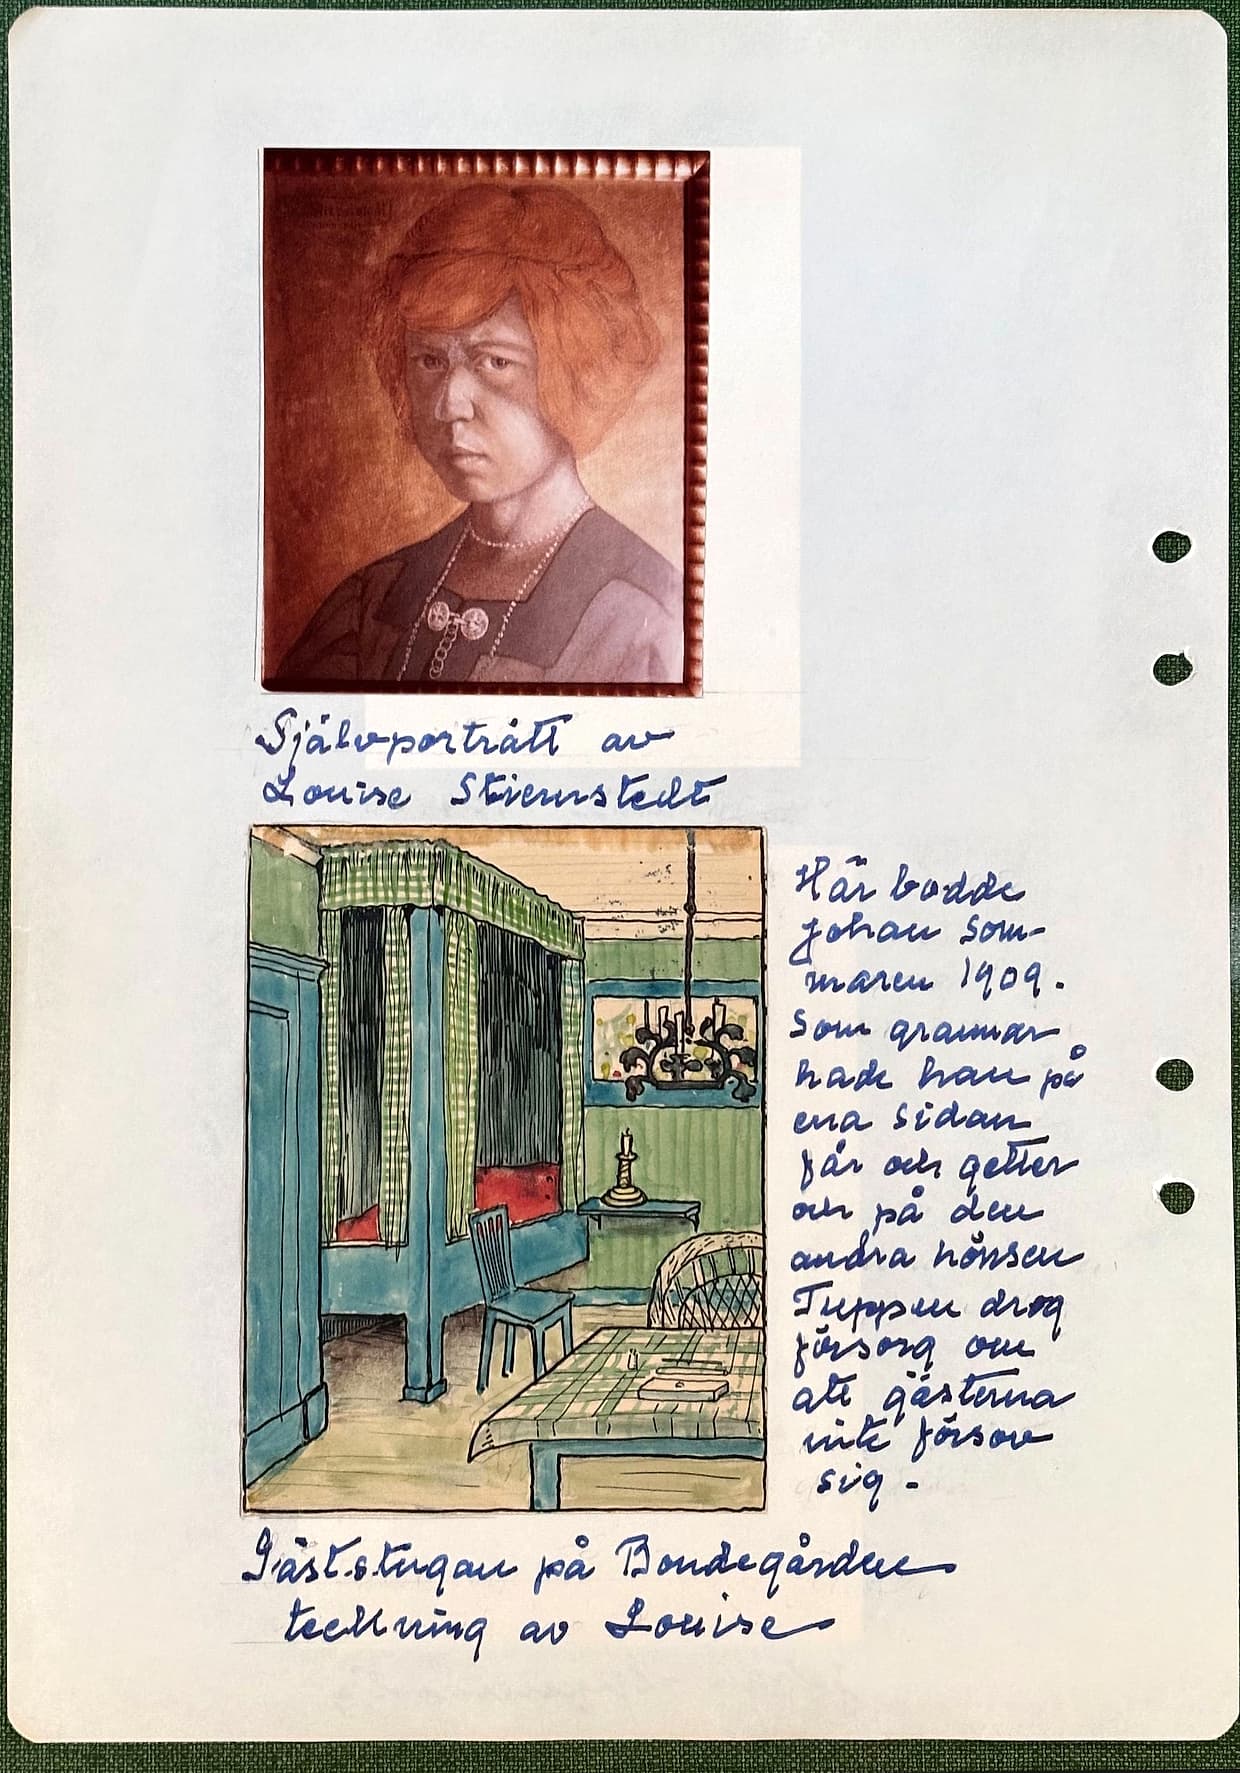 Självporträtt av
Louise Stiernstedt
Här bodde
Johan som-
maren 1909.
Som grannar
hade han på
ena sidan
får och getter
och på den
andra hönsen
Tuppen drog
försorg om
att gästerna
inte försov
sig.
Gäststugan på Bondegården
teckning av Louise